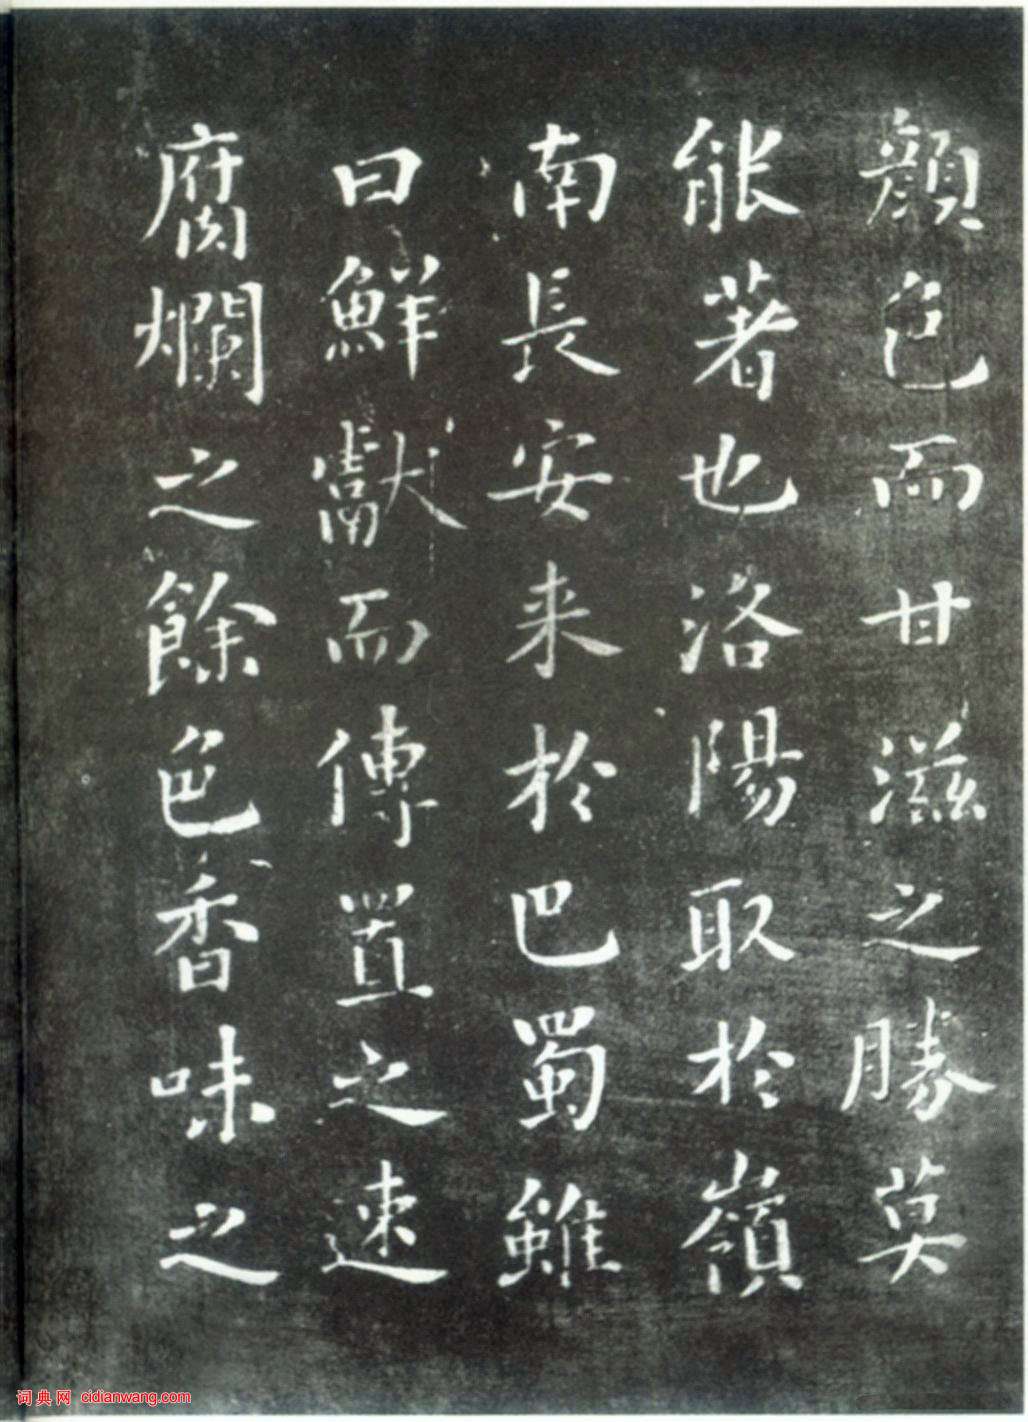 顔色而甘滋之勝莫
能著也洛陽取於嶺
南長安来於巴蜀雖
曰鮮獻而傳置之速
腐爛之餘色香味之
词典网 cidianwang.com